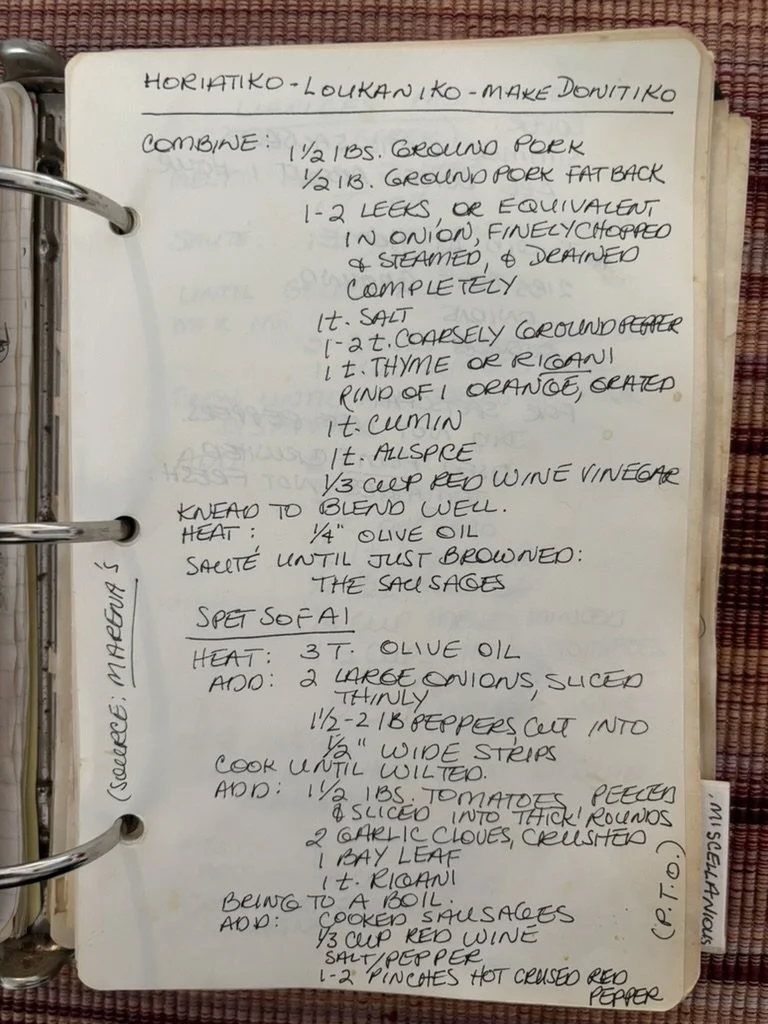 HORIATIKO-LOUKANIKO-MAKEDONITIKO
COMBINE: 1 1/2 lBS. GROUND PORK
1/2 lB. GROUND PORK FATBACK
1-2 LEEKS, OR EQUIVALENT
IN ONION, FINELY CHOPPED
& STEAMED, & DRAINED
COMPLETELY
1t. SALT
1-2 t. COARSELY GROUND PEPPER
1 t. THYME OR RIGANI
RIND OF 1 ORANGE, GRATED
1t. CUMIN
1t. ALLSPICE
1/3 CUP RED WINE VINEGAR
KNEAD TO BLEND WELL.
HEAT: 1/4" OLIVE OIL
SAUTÉ UNTIL JUST BROWNED:
THE SAUSAGES
SPETSOFAI
HEAT: 3 T. OLIVE OIL
ADD: 2 LARGE ONIONS, SLICED
THINLY
1 1/2-2 lB PEPPERS, CUT INTO
1/2" WIDE STRIPS
COOK UNTIL WILTED.
ADD: 1 1/2 lBS. TOMATOES PEELED
& SLICED INTO THICK ROUNDS
2 GARLIC CLOVES, CRUSHED
1 BAY LEAF
1 t. RIGANI
BRING TO A BOIL.
ADD: COOKED SAUSAGES
1/3 CUP RED WINE
SALT/PEPPER
1-2 PINCHES HOT CRUSED RED
PEPPER
(P.T.O.)
(SOURCE: MARENA'S
MISCELLANIOUS